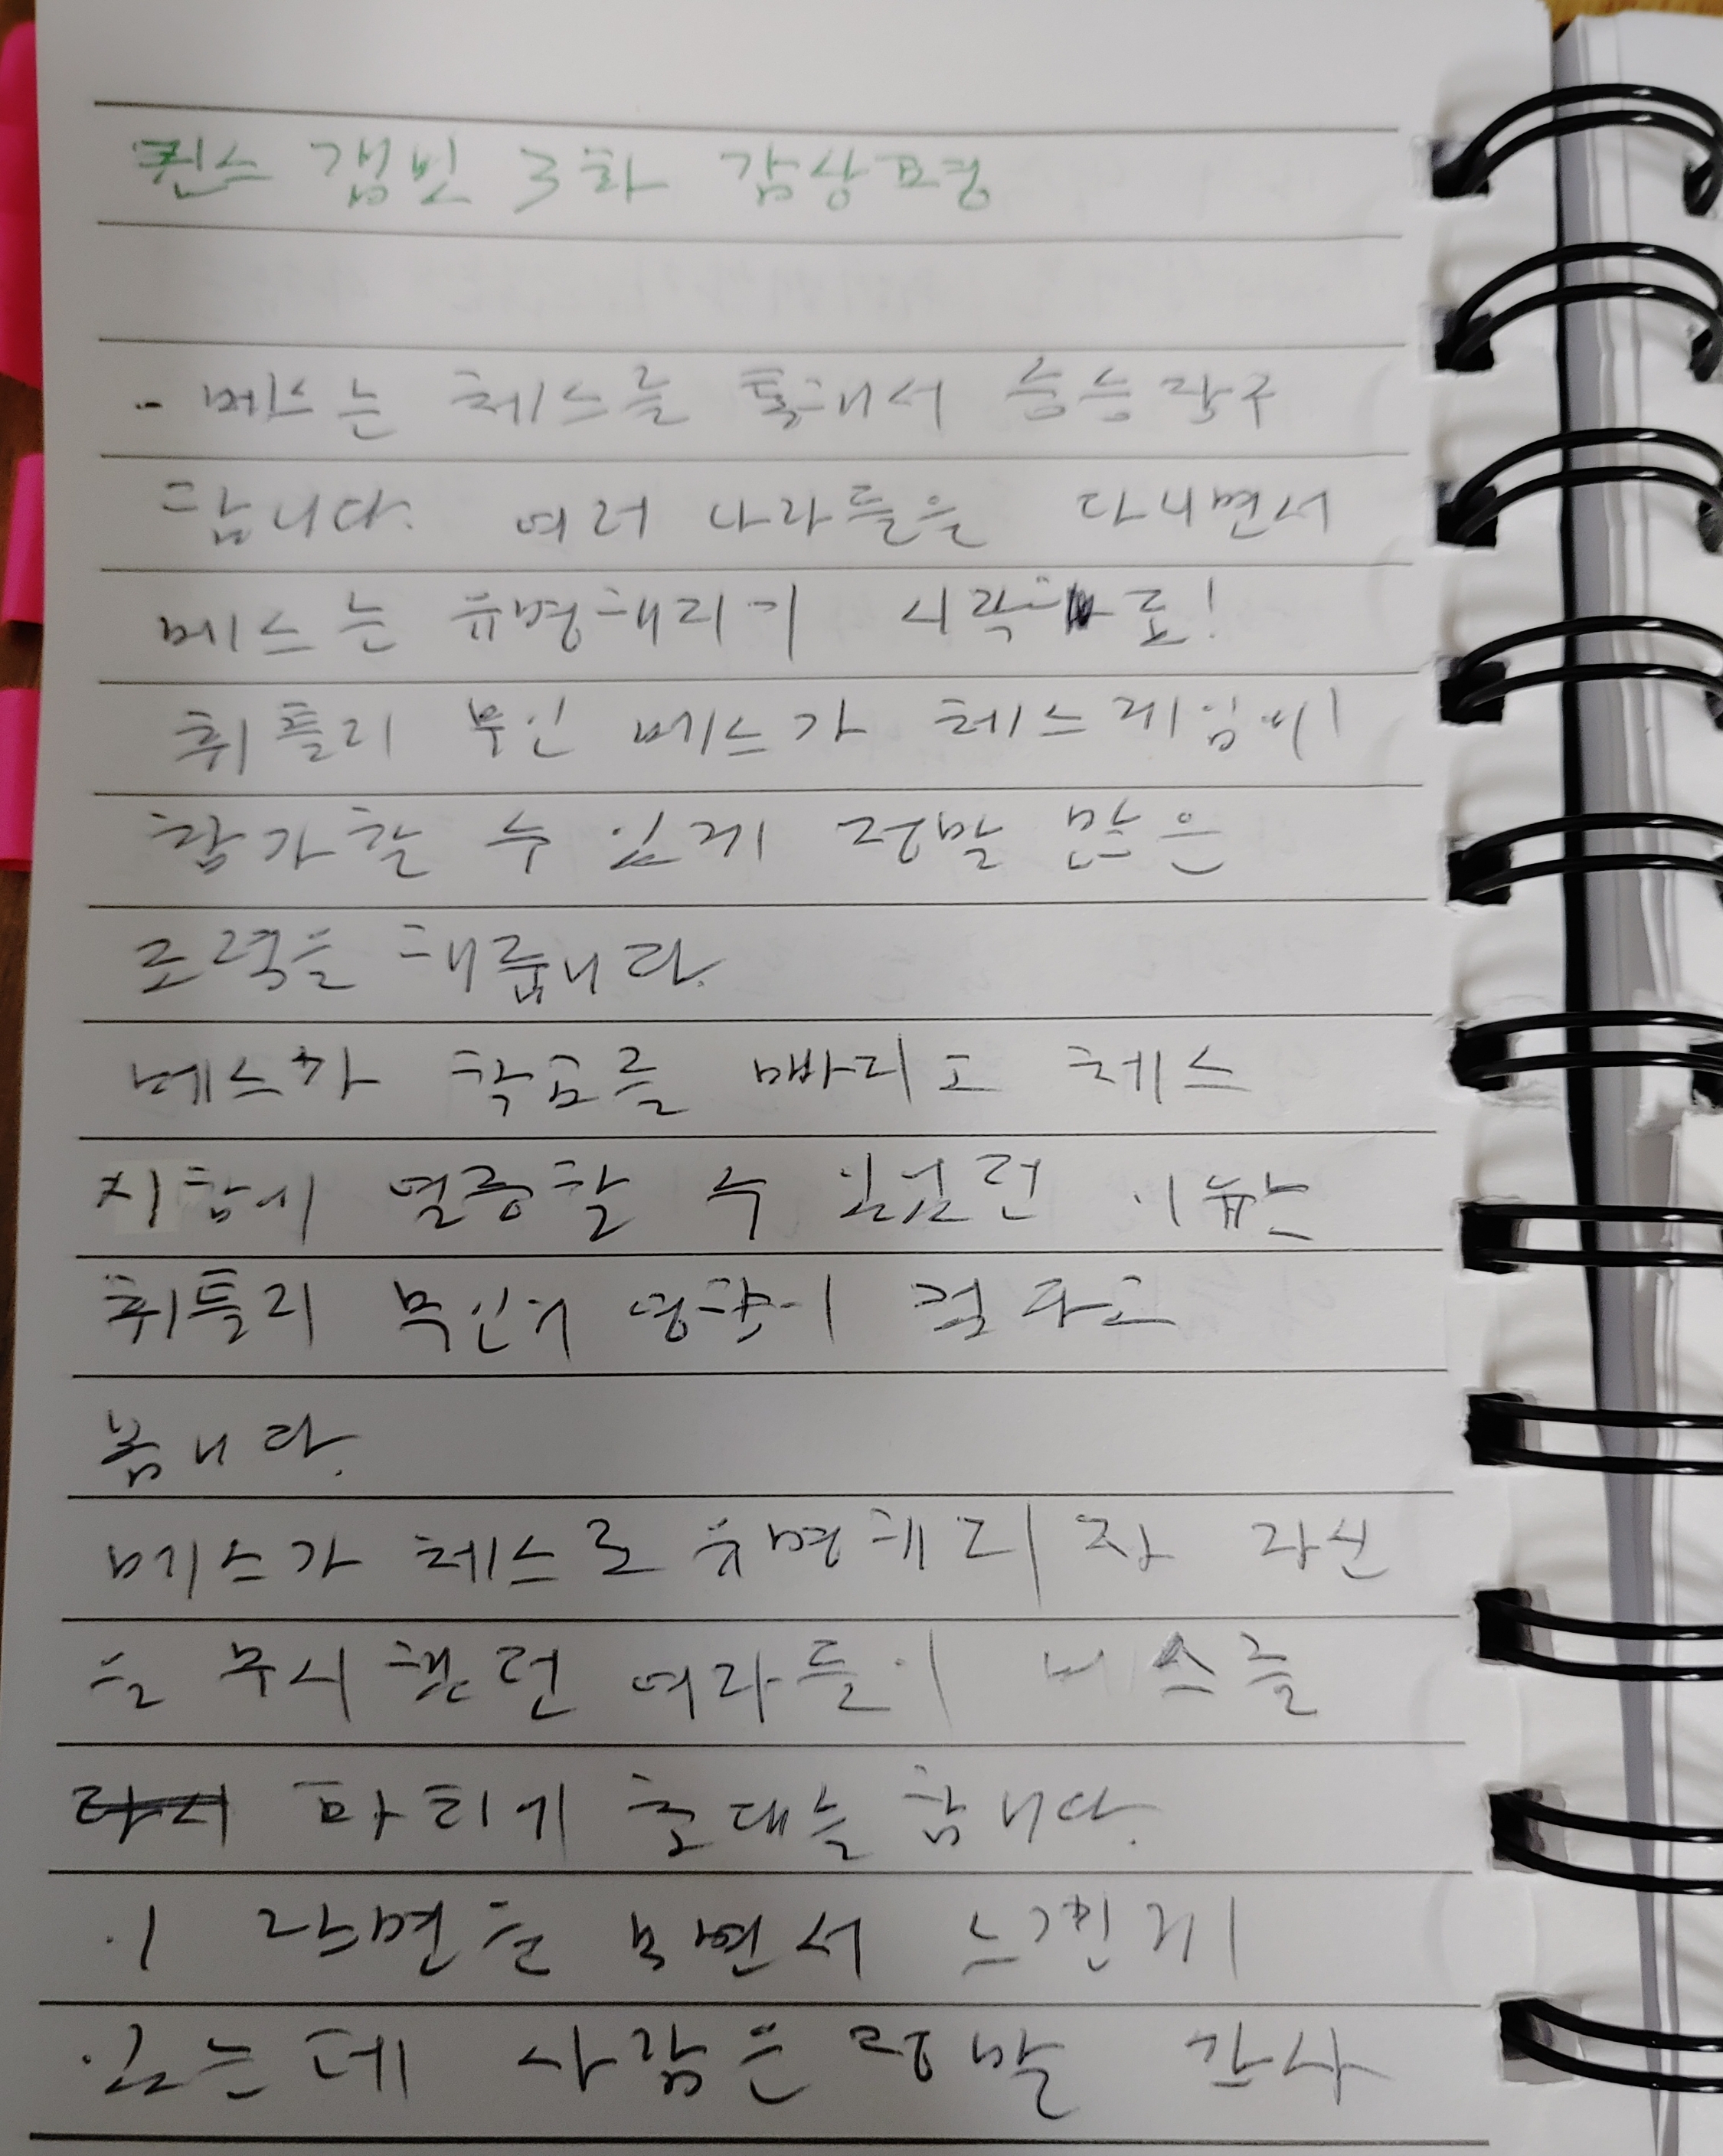 퀸스 갬빗 3화 감상포인
- 베스는 체스를 통해서 승승장구
합니다. 여러 나라들을 다니면서
베스는 유명해지기 시작하죠!
휘틀리 부인 베스가 체스게임에
참가할 수 있게 정말 많은
조력을 해줍니다.
베스가 학교를 빠지고 체스
시합에 열중할 수 있었던 이유는
휘틀리 부인의 영향이 컸다고
봅니다.
베스가 체스로 유명해지자 자신
을 무시했던 여자들이 베스를
파티에 초대를 합니다.
이 장면을 보면서 느낀게
있는데 사람은 정말 간사